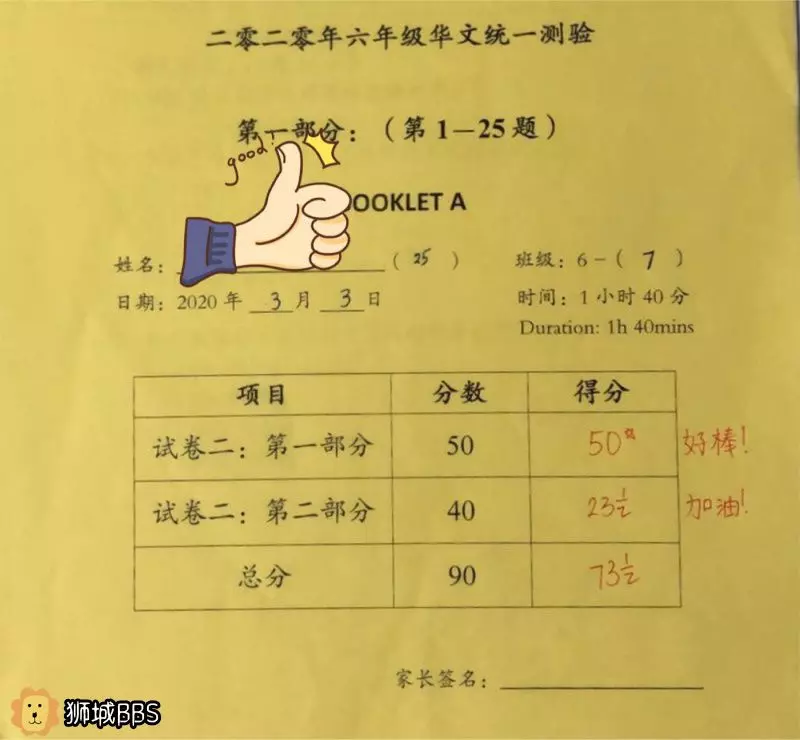 二零二零年六年级华文统一测验
第一部分：（第1—25题）
good!
OOKLET A
姓名：（25）
班级：6－（7）
日期：2020年3月3日
时间：1小时40分
Duration: 1h 40mins
项目 分数 得分
试卷二：第一部分 50 50 好棒！
试卷二：第二部分 40 23½ 加油！
总分 90 73½
家长签名：
狮城BBS